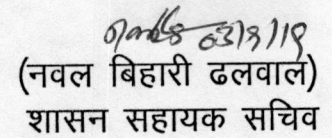 03/9/19
(नवल बिहारी ढलवाल)
शासन सहायक सचिव